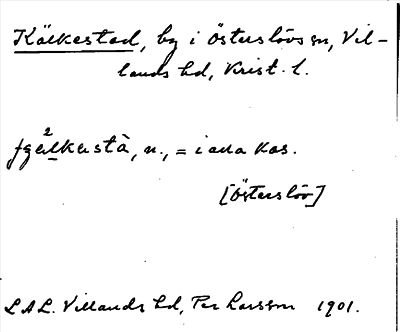 Kälkestad, by i Österslövs sn, Vil-
lands hd, Krist. l.
2
n., = i alla kas.
[Österslöv]
LAL. Villands hd, Per Larsson 1901.